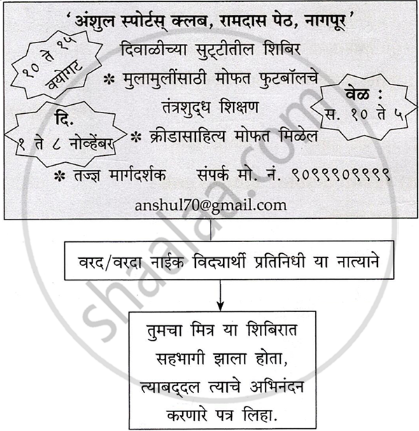 ‘अंशुल स्पोर्टस् क्लब, रामदास पेठ, नागपूर’
१० ते १५
वयोगट
दिवाळीच्या सुट्टीतील शिबिर
* मुलामुलींसाठी मोफत फुटबॉलचे
तंत्रशुद्ध शिक्षण
वेळ :
स. १० ते ५
दि.
१ ते ८ नोव्हेंबर
* क्रीडासाहित्य मोफत मिळेल
* तज्ज्ञ मार्गदर्शक संपर्क मो. नं. ९०९९९०९९९९
anshul70@gmail.com
वरद/वरदा नाईक विद्यार्थी प्रतिनिधी या नात्याने
तुमचा मित्र या शिबिरात
सहभागी झाला होता,
त्याबद्दल त्याचे अभिनंदन
करणारे पत्र लिहा.
shaalaa.com